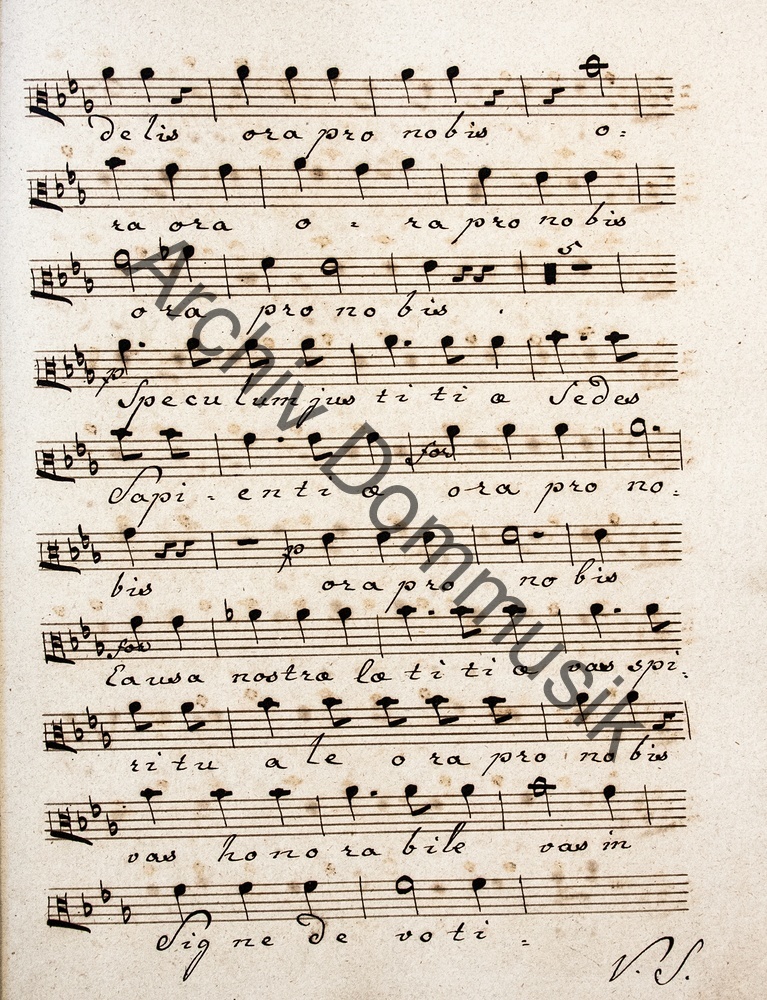 delis ora pro nobis o=
ra ora o - ra pro nobis
ora pro nobis .
5
p
Speculum justitiæ Sedes
Sapi - entiæ ora pro no=
for
bis ora pro nobis
p
for
Causa nostræ lætitiæ vas spi=
ritu ale ora pro nobis
vas honorabile vas in
Signe devoti =
V. S.
Archiv Dommusik